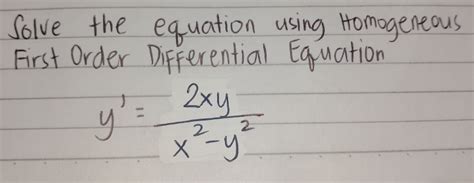 Solve the equation using Homogeneous
First Order Differential Equation
y' = 2xy / x² - y²